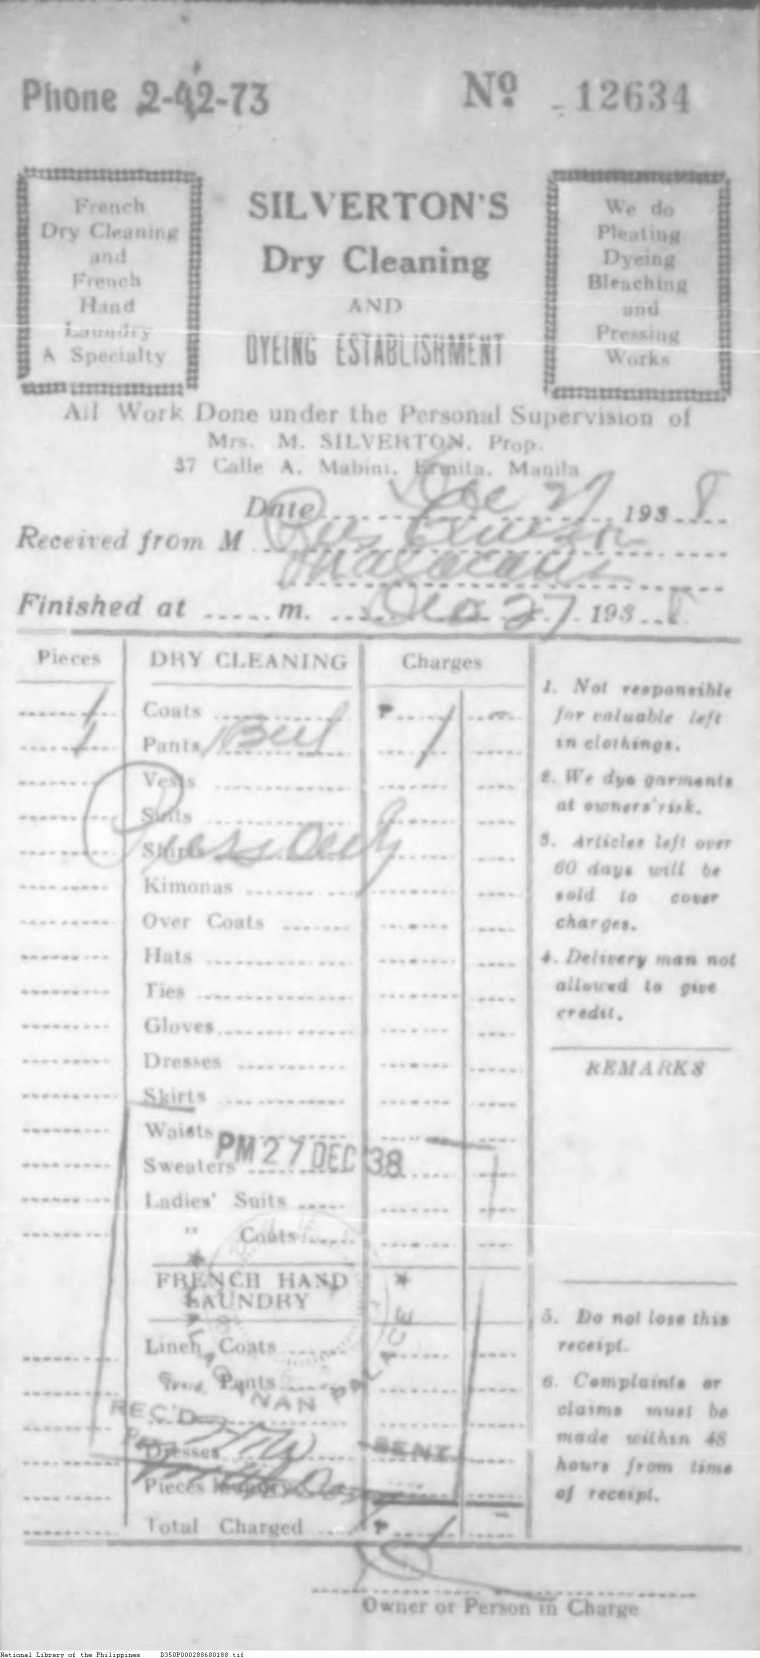 Phone 2-42-73
Nº 12634
French
Dry Cleaning
and
French
Hand
Laundry
A Specialty
SILVERTON'S
Dry Cleaning
AND
DYEING ESTABLISHMENT
We do
Pleating
Dyeing
Bleaching
and
Pressing
Works
All Work Done under the Personal Supervision of
Mrs. M. SILVERTON, Prop.
37 Calle A. Mabini, Ermita, Manila
Date Dec 27, 1938
Received from M Pres Quezon
Malacañan
Finished at ..... m. Dec 27, 1938
Pieces
DRY CLEANING
Charges
1 Coats ₱ 1 –
1 Pants
Vests
Suits
Shirts
Press Only
Kimonas
Over Coats
Hats
Ties
Gloves
Dresses
Skirts
Waists
Sweaters
PM 27 DEC 38
Ladies' Suits
" Coats
FRENCH HAND
LAUNDRY
Linen Coats
Pants
MALACAÑAN PALACE
REC'D
SENT
Dresses
Pieces laundry
Total Charged ₱ 1 –
1. Not responsible
for valuable left
in clothings.
2. We dye garments
at owners' risk.
3. Articles left over
60 days will be
sold to cover
charges.
4. Delivery man not
allowed to give
credit.
REMARKS
5. Do not lose this
receipt.
6. Complaints or
claims must be
made within 48
hours from time
of receipt.
Owner or Person in Charge
National Library of the Philippines D350P000288680188.tif